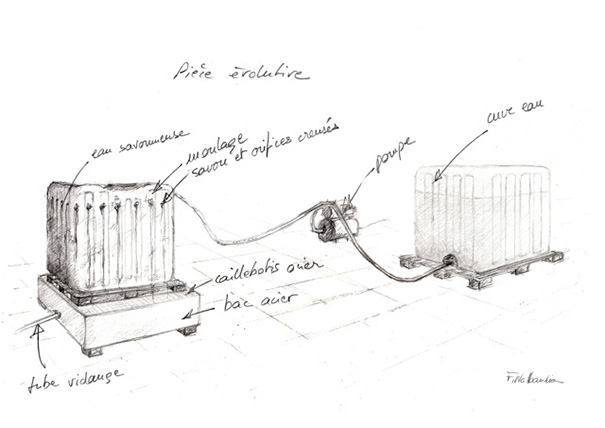 Pièce évolutive
eau savonneuse
moulage
savon et orifices creusés
pompe
cuve eau
caillebotis acier
bac acier
tube vidange